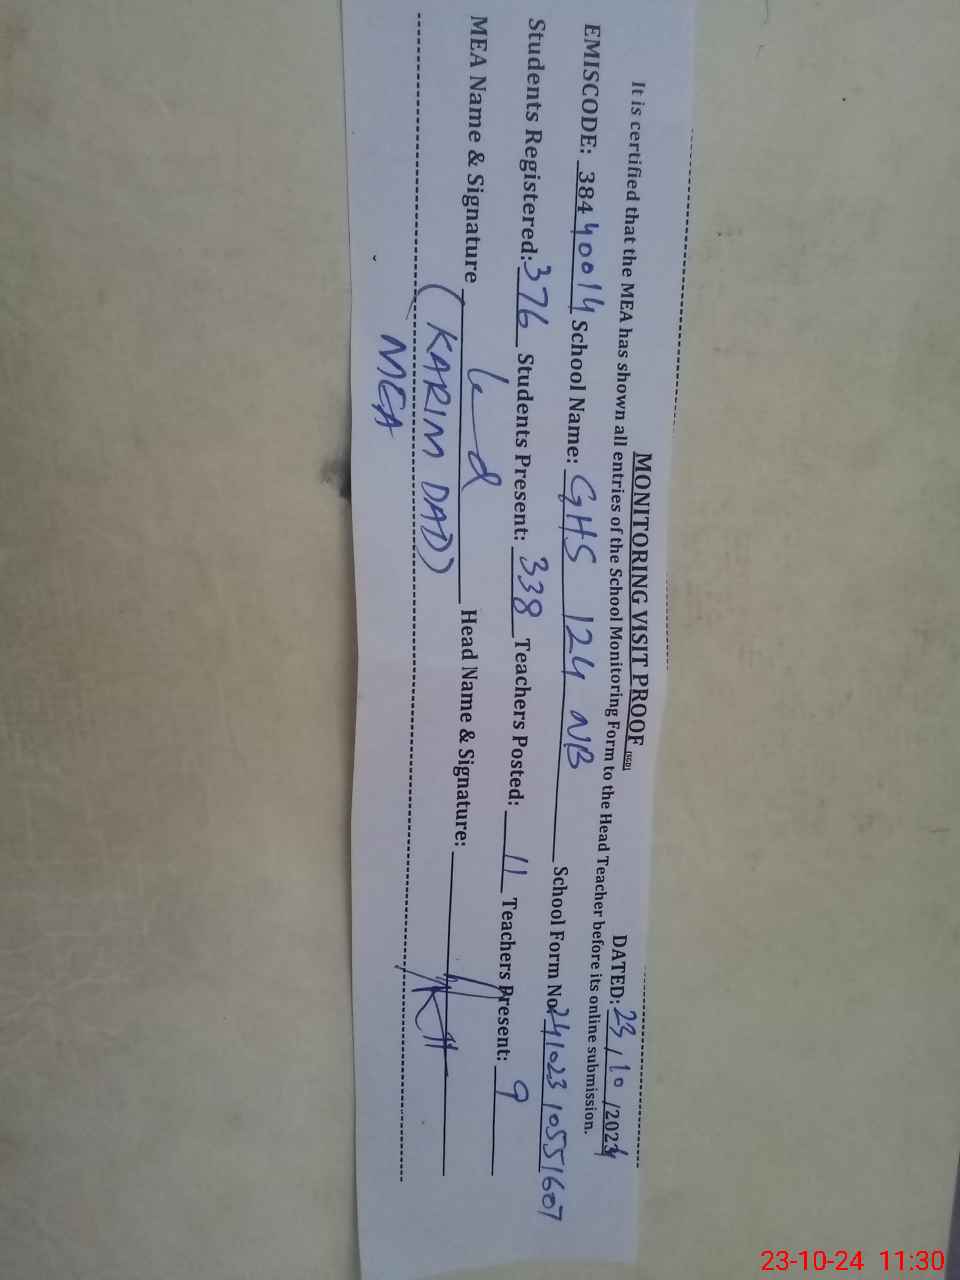 MONITORING VISIT PROOF (SGD) DATED: 23/10/2024
It is certified that the MEA has shown all entries of the School Monitoring Form to the Head Teacher before its online submission.
EMISCODE: 38440014 School Name: GHS 124 NB School Form No 241023 10551607
Students Registered: 376 Students Present: 338 Teachers Posted: 11 Teachers Present: 9
MEA Name & Signature Head Name & Signature:
(KARIM DAD)
MEA
23-10-24 11:30